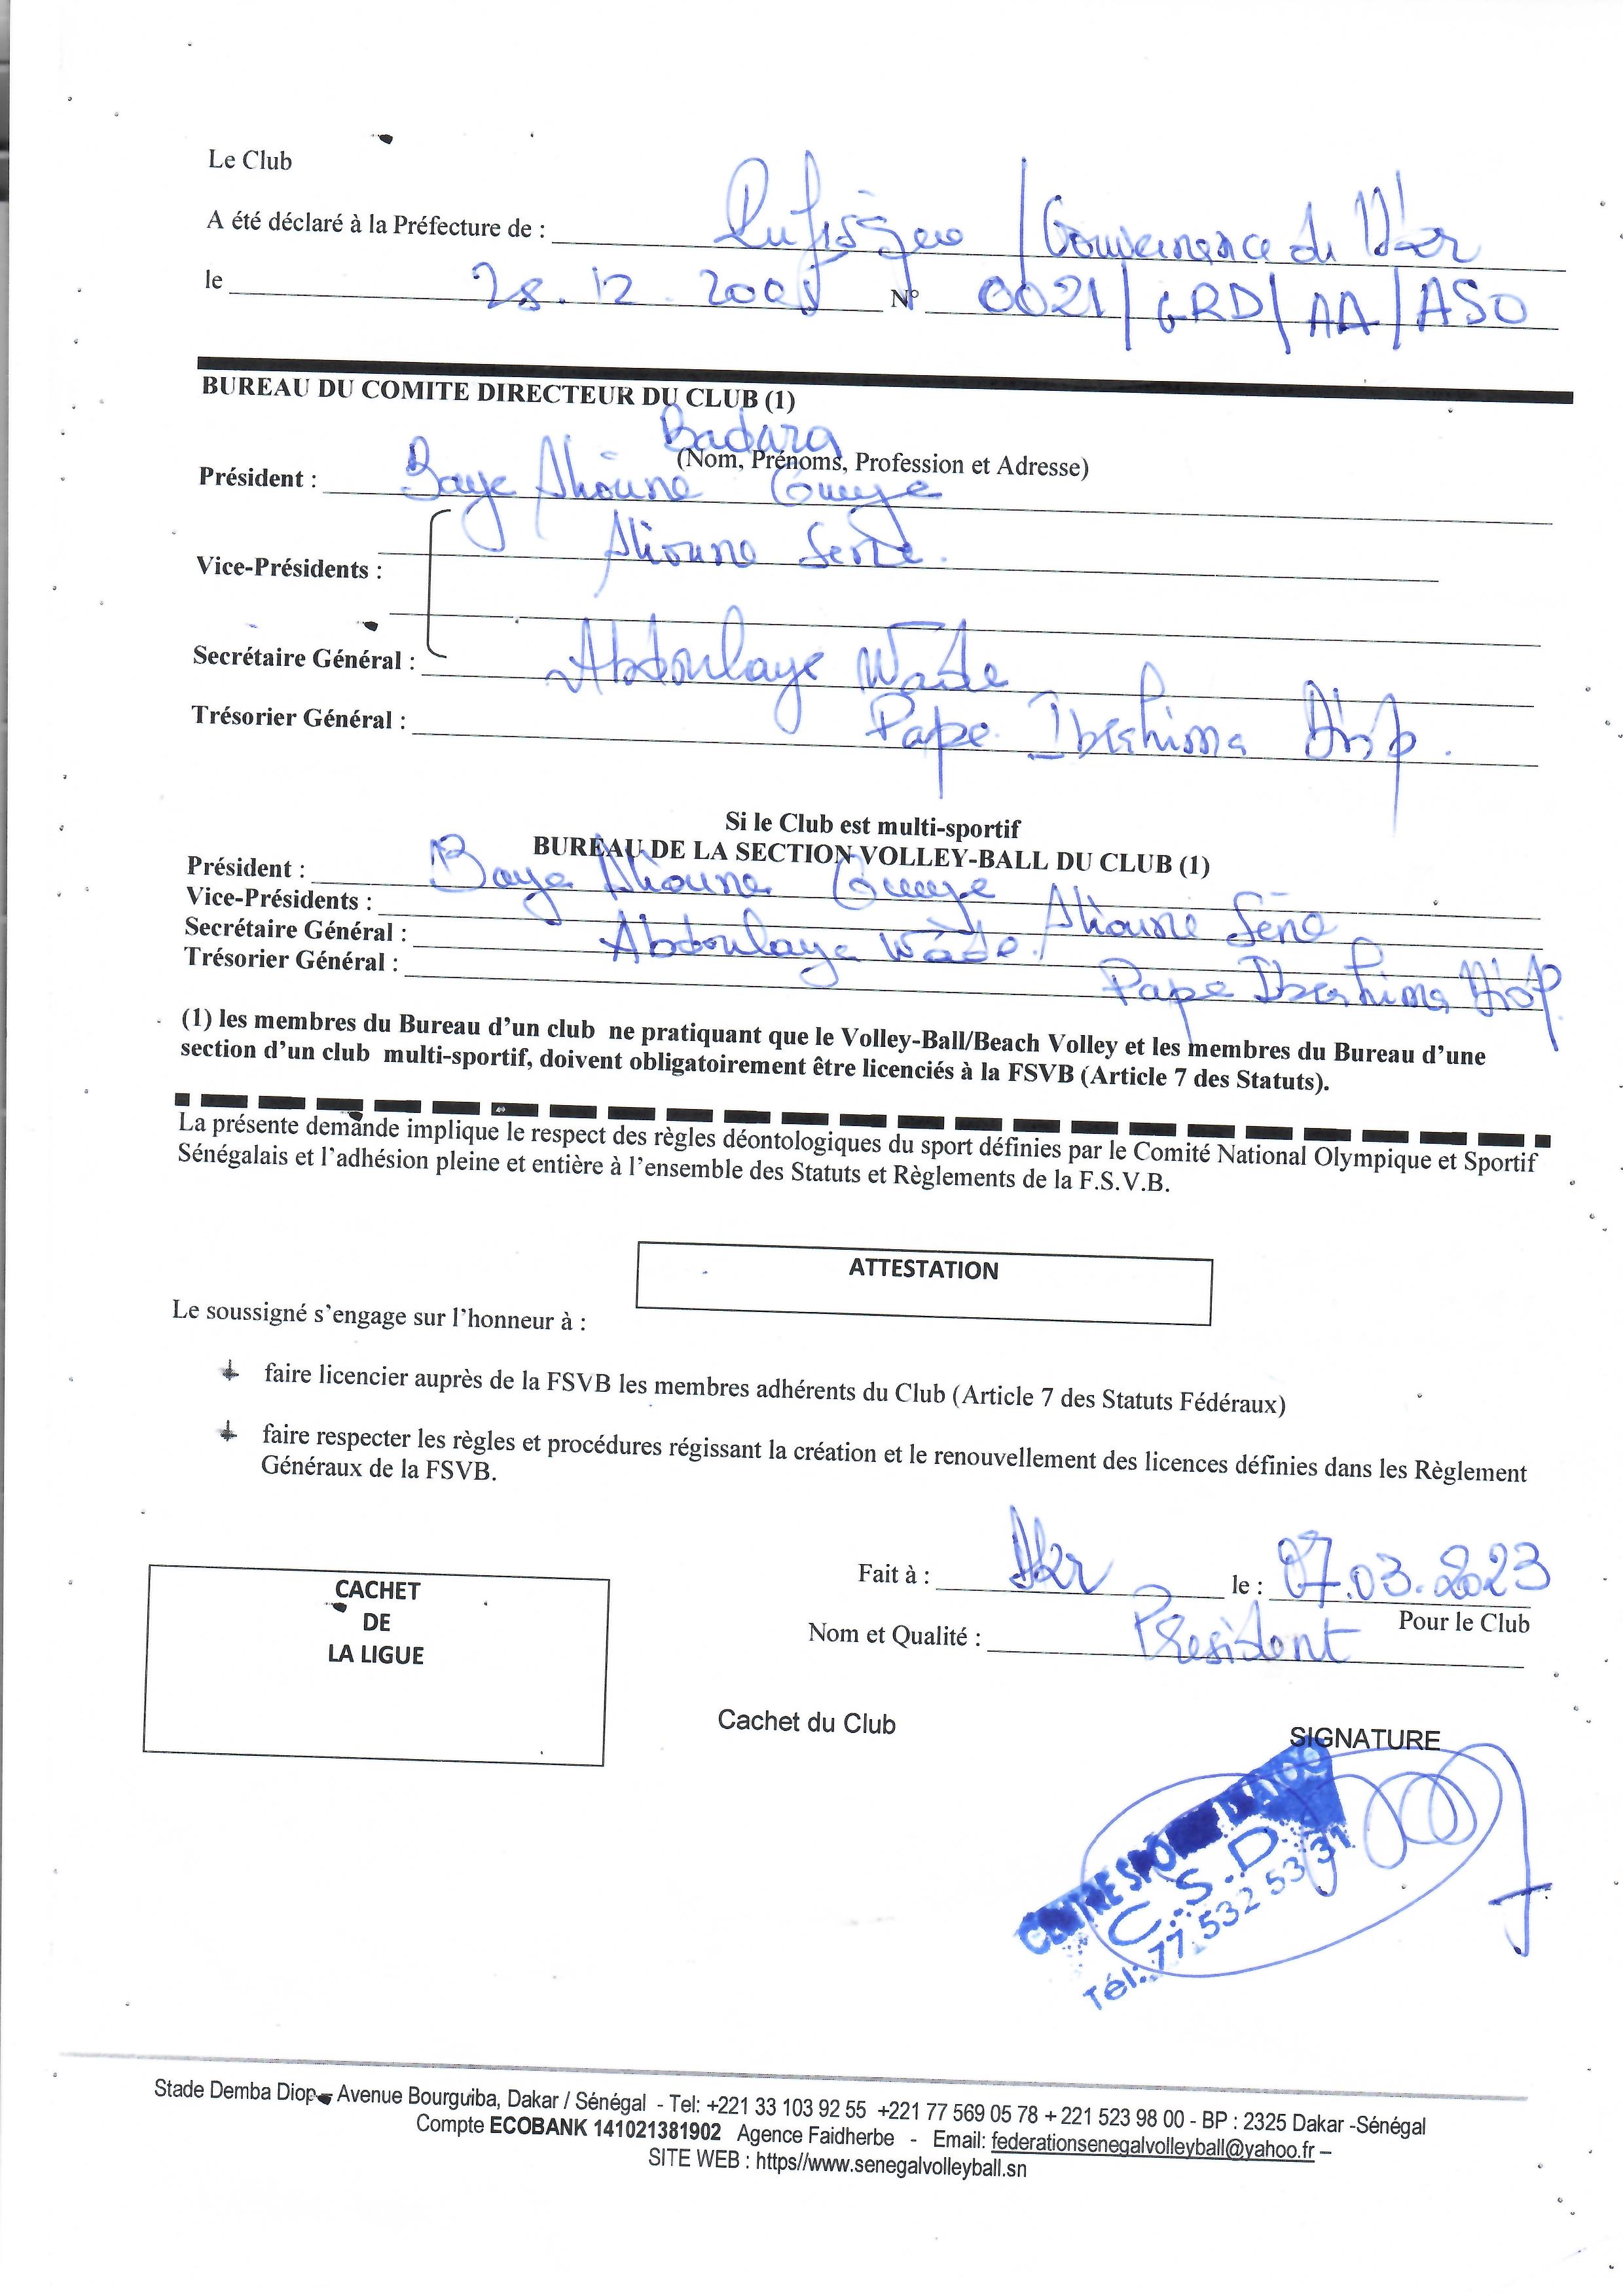 Le Club
A été déclaré à la Préfecture de : Rufisque / Gouvernance de Dkr
le 28.12.200 N° 0021/GRD/AA/ASO
BUREAU DU COMITE DIRECTEUR DU CLUB (1)
Badara
(Nom, Prénoms, Profession et Adresse)
Président : Baye Alioune Gueye
Vice-Présidents : Alioune Sene.
Secrétaire Général : Abdoulaye Wade
Trésorier Général : Pape Ibrahima Diop.
Si le Club est multi-sportif
BUREAU DE LA SECTION VOLLEY-BALL DU CLUB (1)
Président : Baye Alioune Gueye
Vice-Présidents : Alioune Sène
Secrétaire Général : Abdoulaye Wade.
Trésorier Général : Pape Ibrahima Diop
(1) les membres du Bureau d’un club ne pratiquant que le Volley-Ball/Beach Volley et les membres du Bureau d’une
section d’un club multi-sportif, doivent obligatoirement être licenciés à la FSVB (Article 7 des Statuts).
La présente demande implique le respect des règles déontologiques du sport définies par le Comité National Olympique et Sportif
Sénégalais et l’adhésion pleine et entière à l’ensemble des Statuts et Règlements de la F.S.V.B.
ATTESTATION
Le soussigné s’engage sur l’honneur à :
faire licencier auprès de la FSVB les membres adhérents du Club (Article 7 des Statuts Fédéraux)
faire respecter les règles et procédures régissant la création et le renouvellement des licences définies dans les Règlement
Généraux de la FSVB.
Fait à : Dkr le : 07.03.2023
Pour le Club
Nom et Qualité : President
CACHET
DE
LA LIGUE
Cachet du Club
SIGNATURE
CENTRE SPORT
C.S.D
Tél: 77 532 53 31
Stade Demba Diop – Avenue Bourguiba, Dakar / Sénégal - Tel: +221 33 103 92 55 +221 77 569 05 78 + 221 523 98 00 - BP : 2325 Dakar -Sénégal
Compte ECOBANK 141021381902 Agence Faidherbe - Email: federationsenegalvolleyball@yahoo.fr –
SITE WEB : https//www.senegalvolleyball.sn